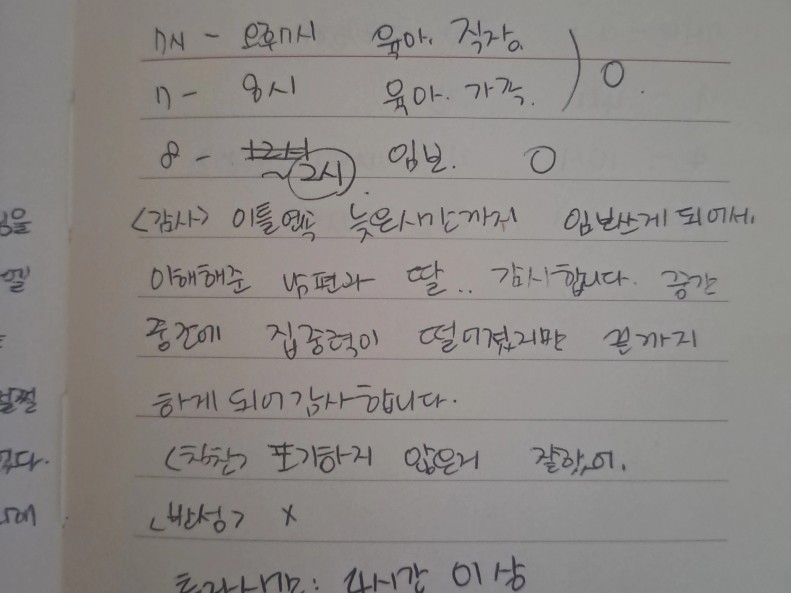 7시 - 오후7시 육아. 직장. ) O.
7 - 8시 육아. 가족.
8 - 12시 ~ 2시. 임보. O
<감사> 이틀연속 늦은시간까지 임보쓰게 되어서.
이해해준 남편과 딸.. 감사합니다. 중간
중간에 집중력이 떨어졌지만 끝까지
하게 되어 감사합니다.
<칭찬> 포기하지 않은거 잘했어.
<반성> x
투자시간: 4시간 이상